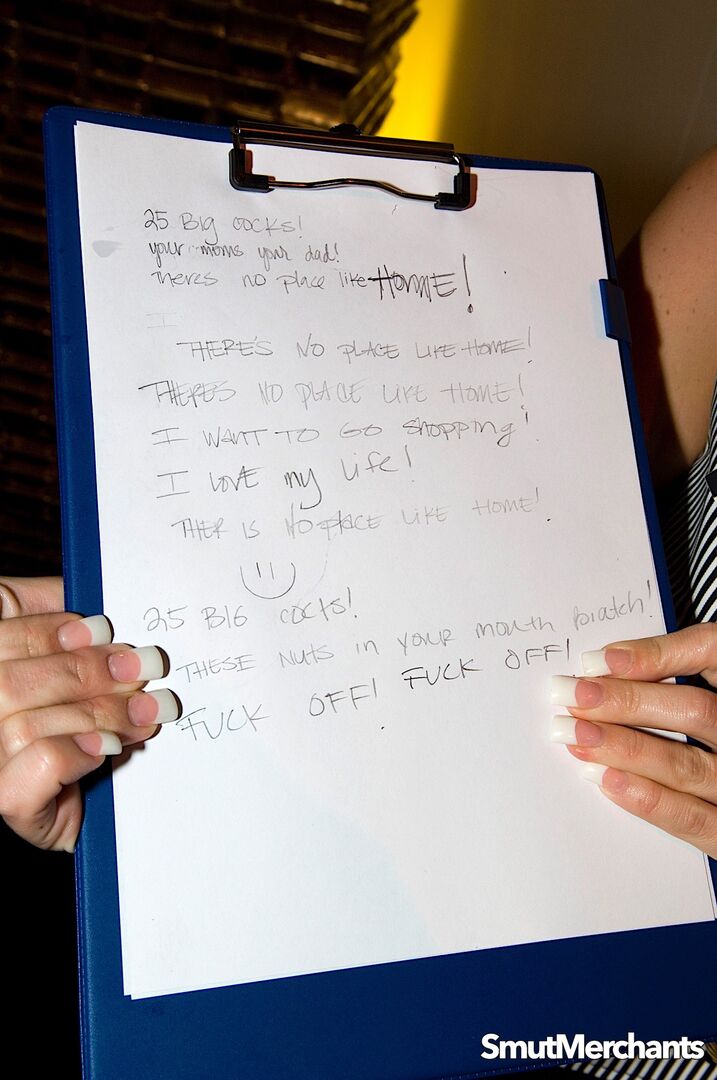 25 Big cocks!
your moms your dad!
Theres no place like HOME!
I
THERE'S NO PLACE LIKE HOME!
THERE'S NO PLACE LIKE HOME!
I WANT TO GO Shopping!
I LOVE my Life!
THER IS NO PLACE LIKE HOME!
25 BIG COCKS!
THESE NUTS IN YOUR MOUTH BIATCH!
FUCK OFF! FUCK OFF!
SmutMerchants